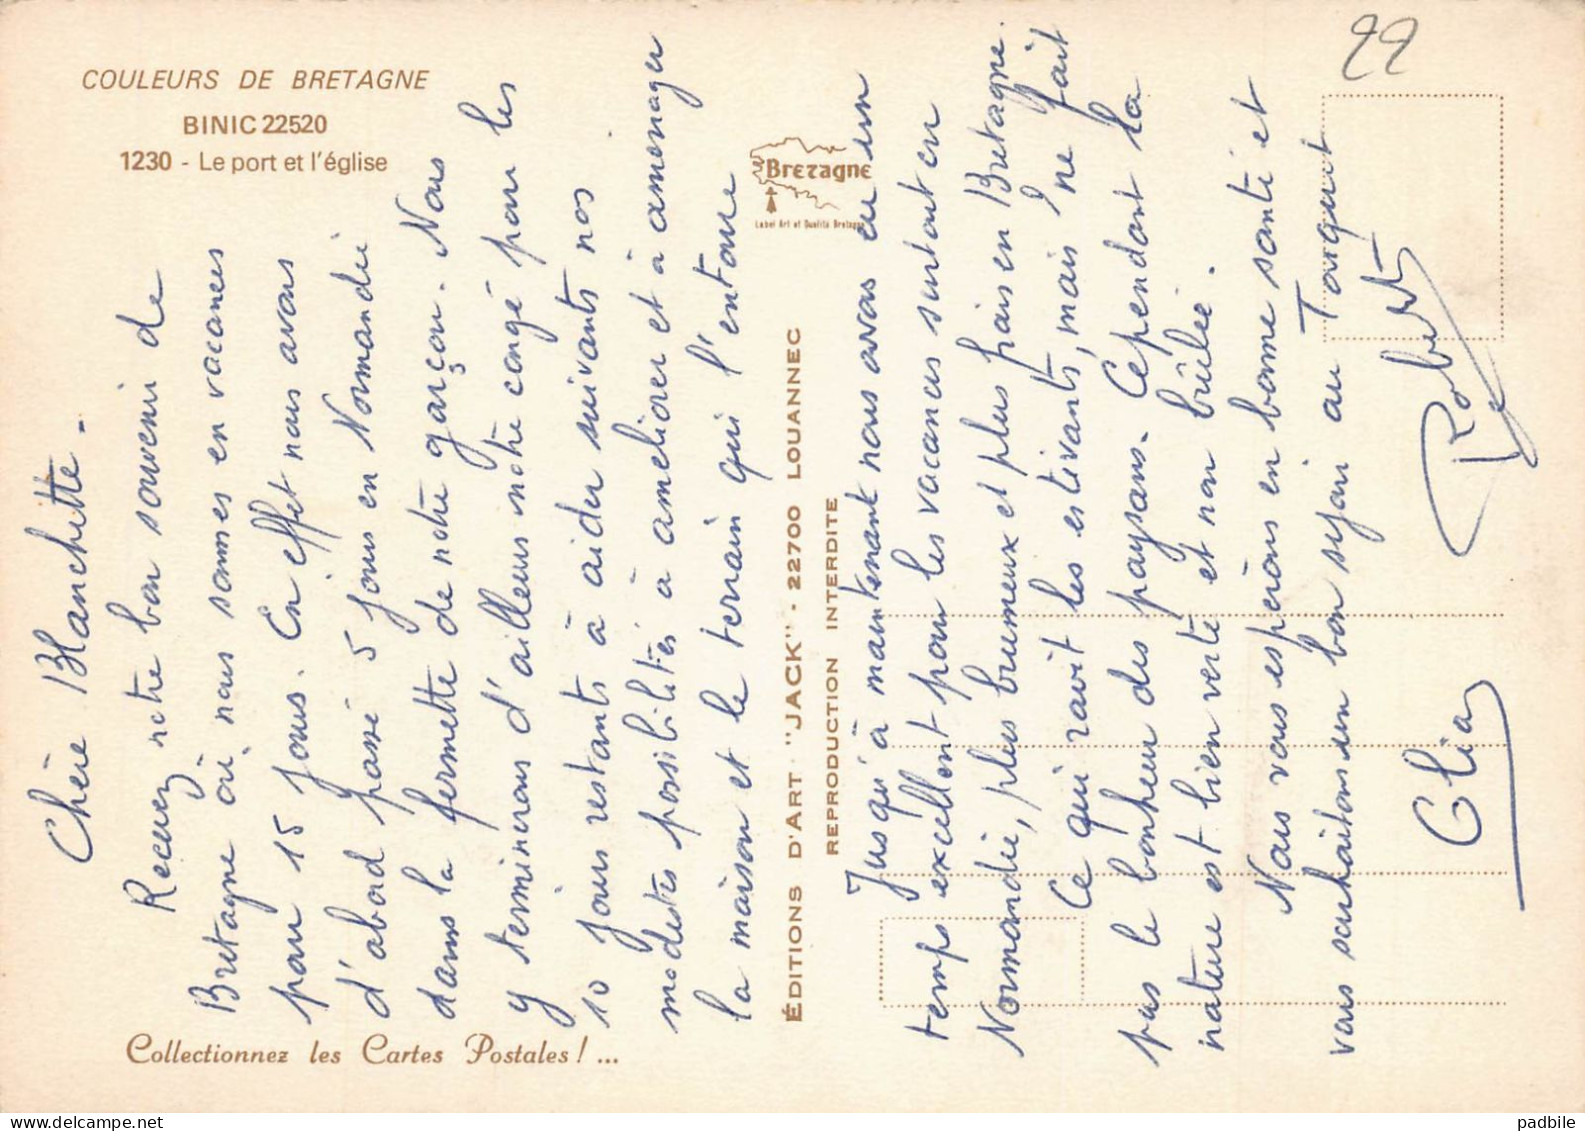 COULEURS DE BRETAGNE
BINIC 22520
1230 - Le port et l'église
Bretagne
Label Art et Qualité Bretagne
22
Chère Blanchette.
Recevez notre bon souvenir de
Bretagne où nous sommes en vacances
pour 15 jours. En effet nous avons
d'abord passé 5 jours en Normandie
dans la fermette de notre garçon. Nous
y terminerons d'ailleurs notre congé pour les
10 jours restants à aider suivants nos
modestes possibilités à améliorer et à aménager
la maison et le terrain qui l'entoure
ÉDITIONS D'ART - "JACK" - 22700 LOUANNEC
REPRODUCTION INTERDITE
Jusqu'à maintenant nous avons eu un
temps excellent pour les vacances surtout en
Normandie, plus brumeux et plus frais en Bretagne.
Ce qui ravit les estivants, mais ne fait
pas le bonheur des paysans. Cependant la
nature est bien verte et non brûlée.
Nous vous espérons en bonne santé et
vous souhaitons un bon séjour au Torquet
Robert
Clia
Collectionnez les Cartes Postales ! ...
padbile